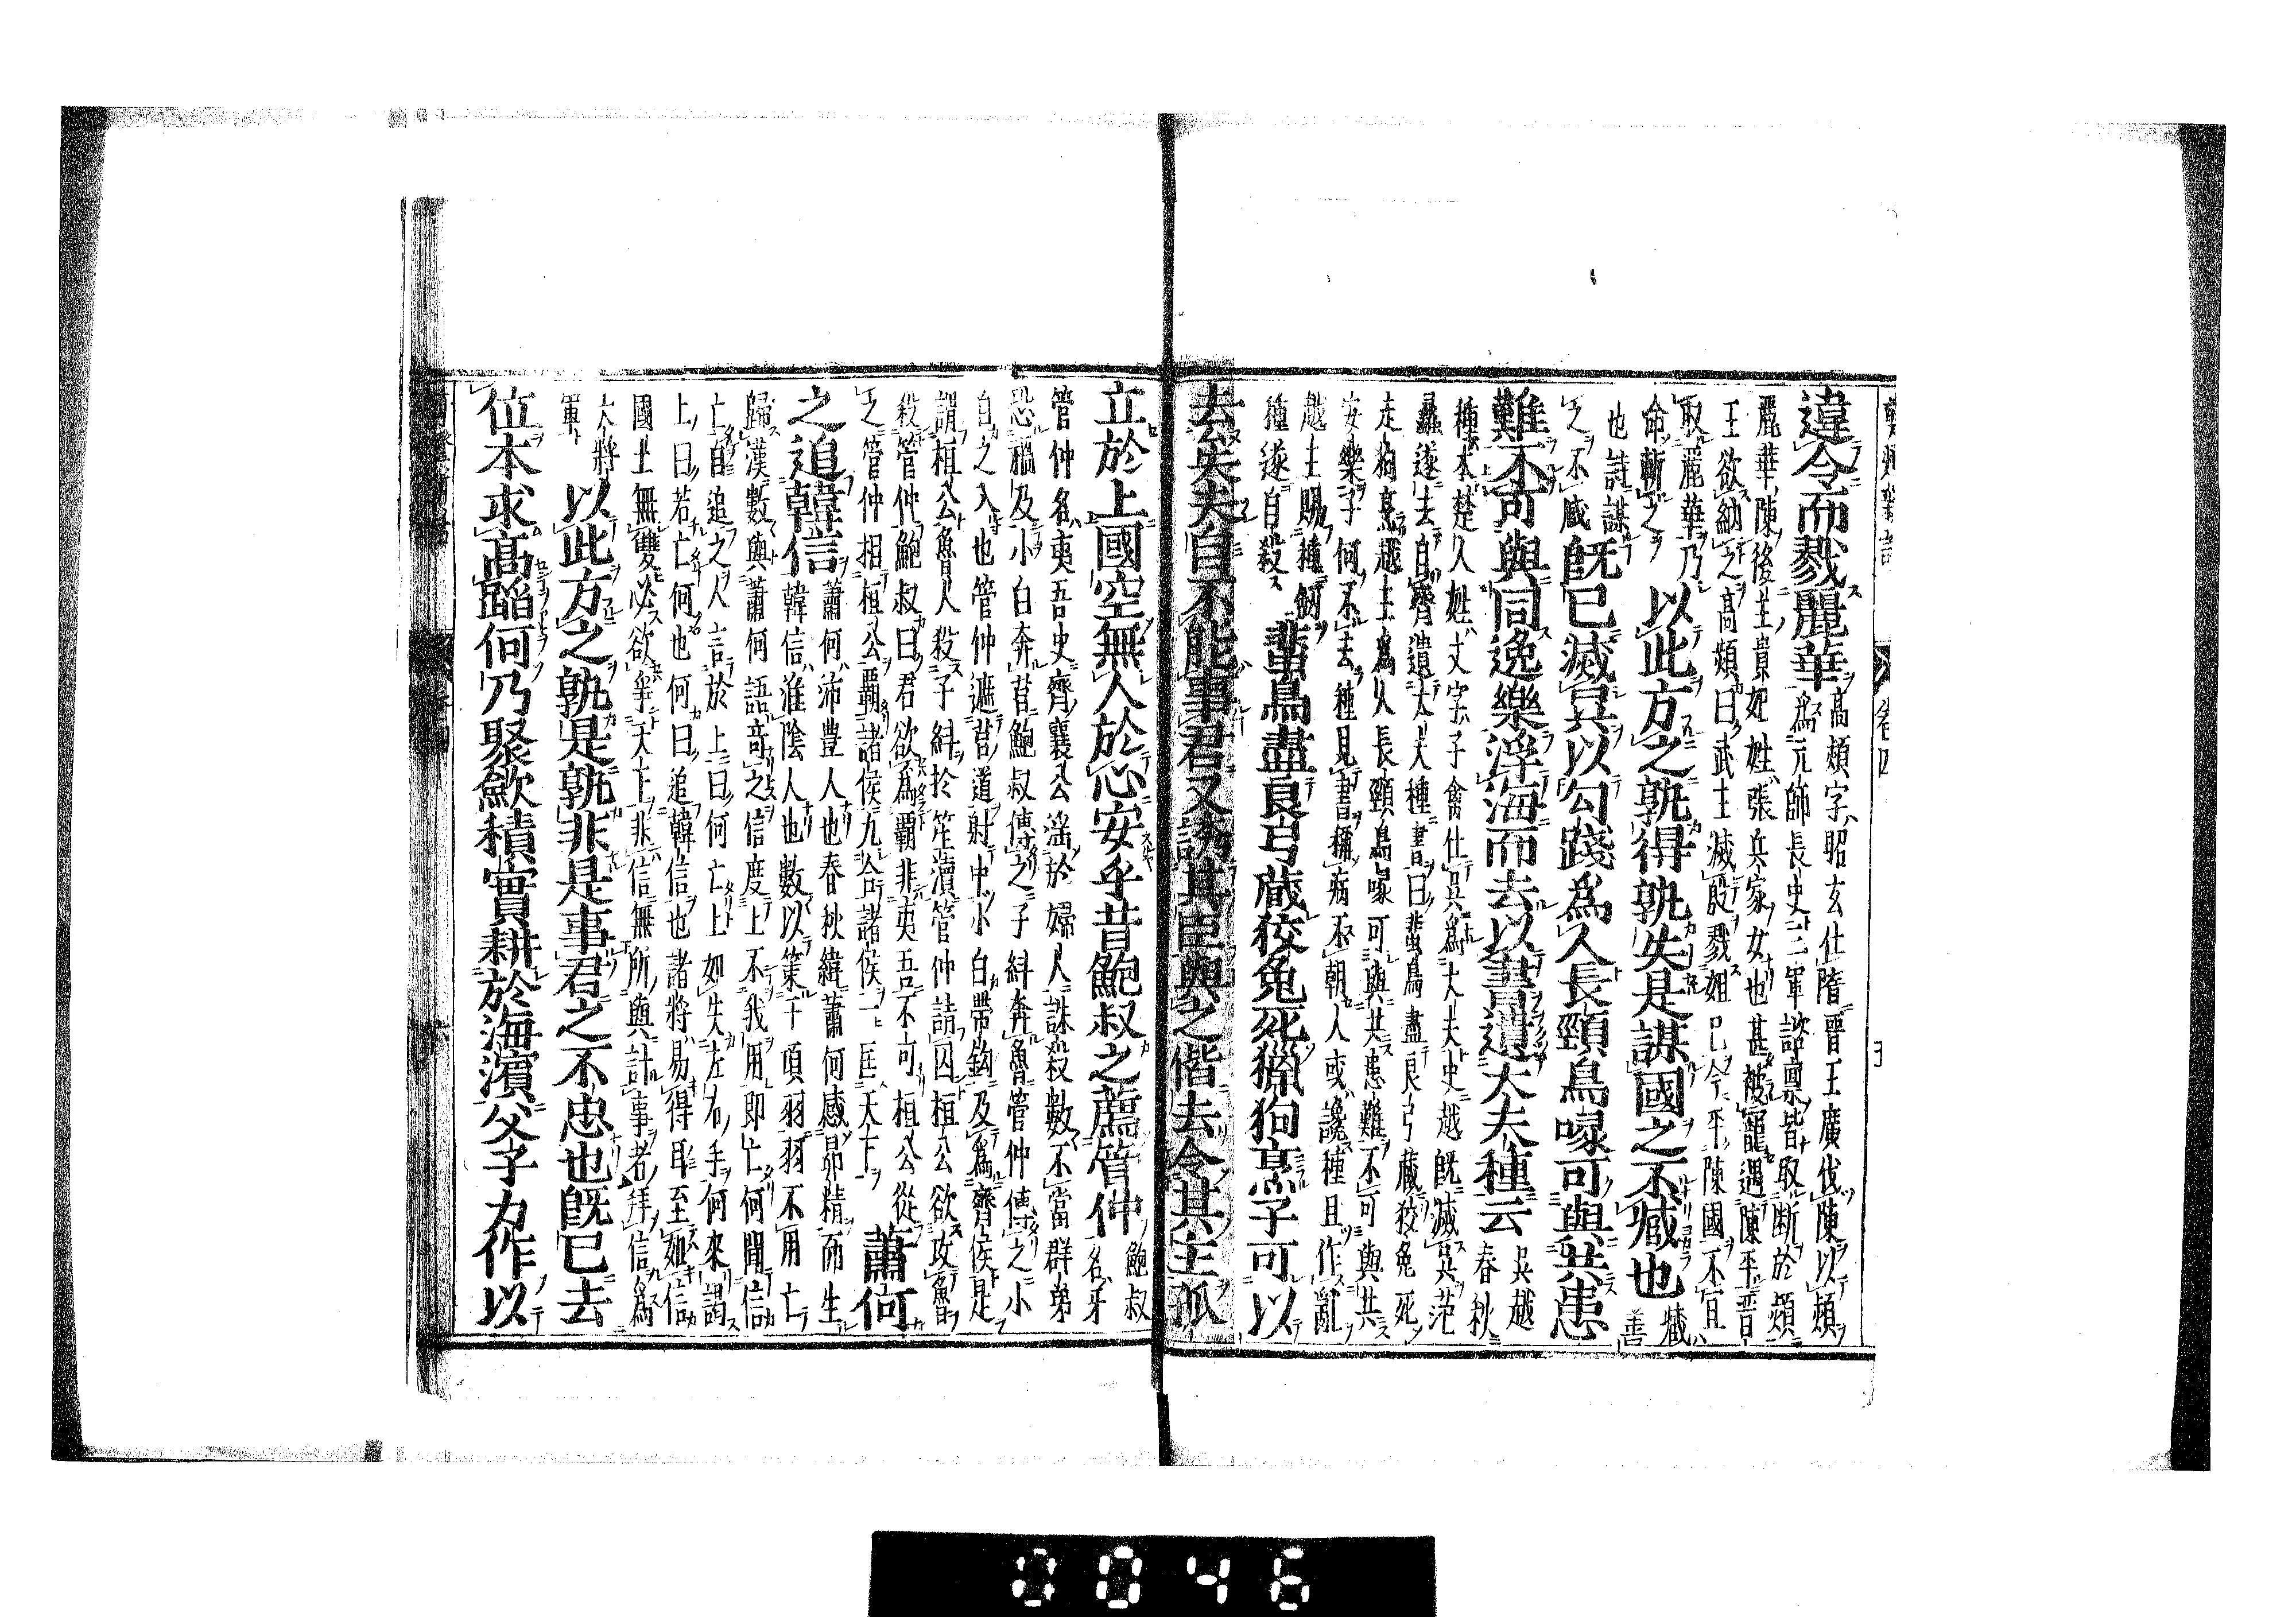 違令而戮麗華高熲字昭玄仕隋晋王廣伐陳以熲
爲元帥長史三軍諮稟皆取断於熲
麗華陳後主貴妃姓張兵家女也甚被寵遇陳平晋
王欲納之高熲曰武王滅殷戮妲己今平陳國不宜
取麗華乃
命斬之以此方之孰得孰失是謀國之不臧也臧
善
也詩謀
之不臧既已滅呉以勾踐爲人長頸鳥喙可與共患
難不可與同逸樂浮海而去以書遺大夫種云呉越
春秋
種本楚人姓文字子禽仕呉爲大夫史越既滅呉范
蠡遂去自齊遺大夫種書曰蜚鳥盡良弓藏狡兔死
走狗烹越王爲人長頸鳥喙可與共患難不可與共
安樂子何不去種見書稱病不朝人或讒種且作亂
越王賜種劔
種遂自殺蜚鳥盡良弓藏狡兔死獵狗烹子可以
去矣夫自不能事君又誘其臣與之偕去令其主孤
立於上國空無人於心安乎昔鮑叔之薦管仲鮑叔
名牙
管仲名夷吾史齊襄公淫於婦人誅殺數不當群弟
恐禍及小白奔莒鮑叔傅之子糾奔魯管仲傅之小
白之入也管仲遮莒道射中小白帶鈎及爲齊侯是
謂桓公魯人殺子糾於笙瀆管仲請囚桓公欲攻魯
殺管仲鮑叔曰君欲爲覇非夷吾不可桓公從
之管仲相桓公覇諸侯九合諸侯一匡天下蕭何
之追韓信蕭何沛豊人也春秋緯蕭何感昴精而生
韓信淮陰人也數以策干項羽羽不用亡
歸漢數與蕭何語竒之信度上不我用即亡何聞信
亡自追之人言於上曰何亡上如失左右手何來謁
上曰若亡何也何曰追韓信也諸將易得耳至如信
國士無雙必欲爭天下非信無所與計事者拜信爲
大將
軍以此方之孰是孰非是事君之不忠也既已去
位本求高蹈何乃聚歛積實耕於海濱父子力作以
0046